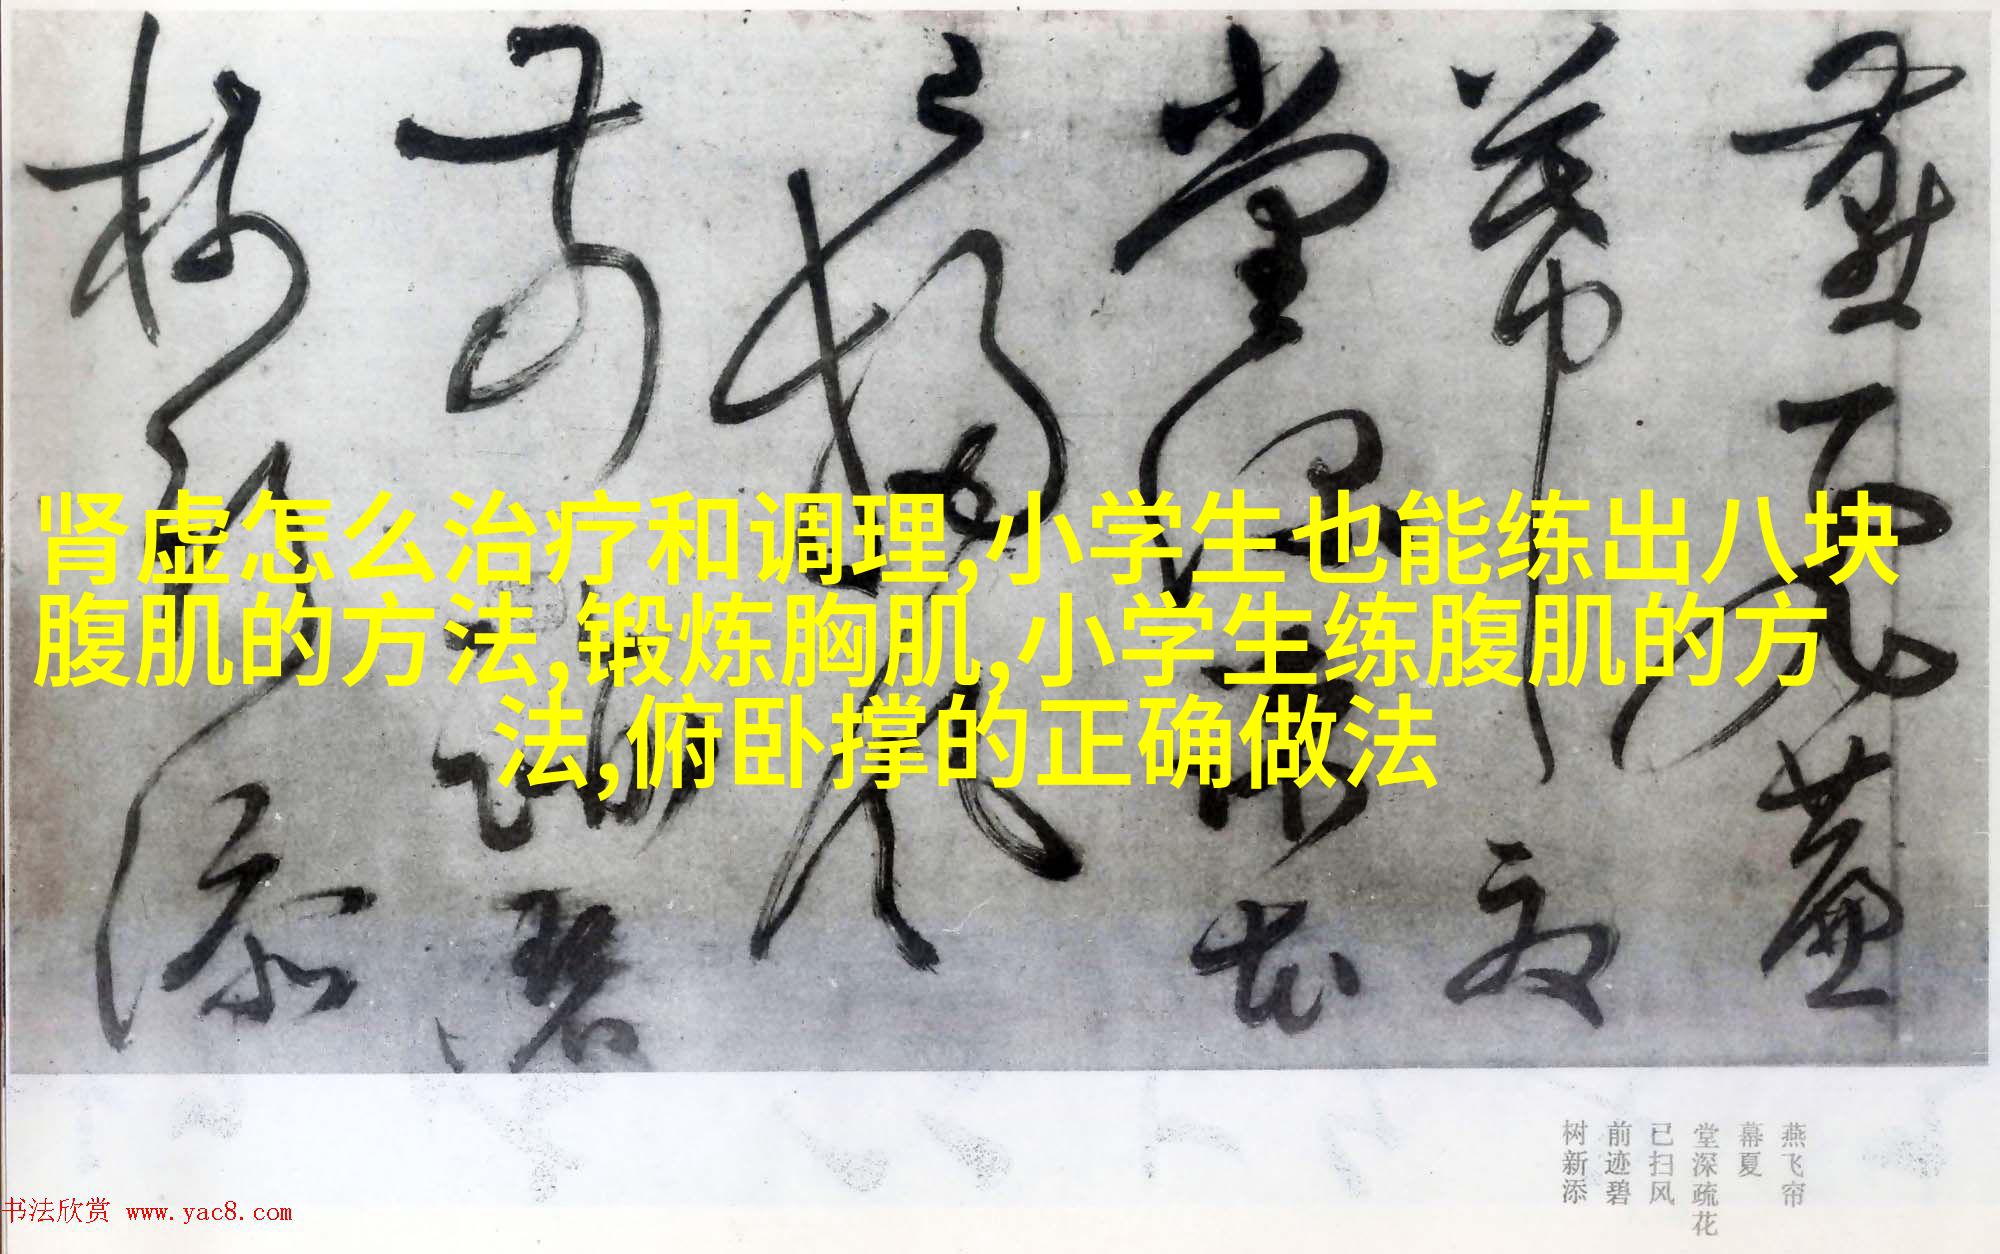 肾虚怎么治疗和调理,小学生也能练出八块
腹肌的方法,锻炼胸肌,小学生练腹肌的方
法,俯卧撑的正确做法
燕飞帘
幕夏
堂深疏花
已扫风
前迹碧
树新添
书法欣赏 www.yac8.com